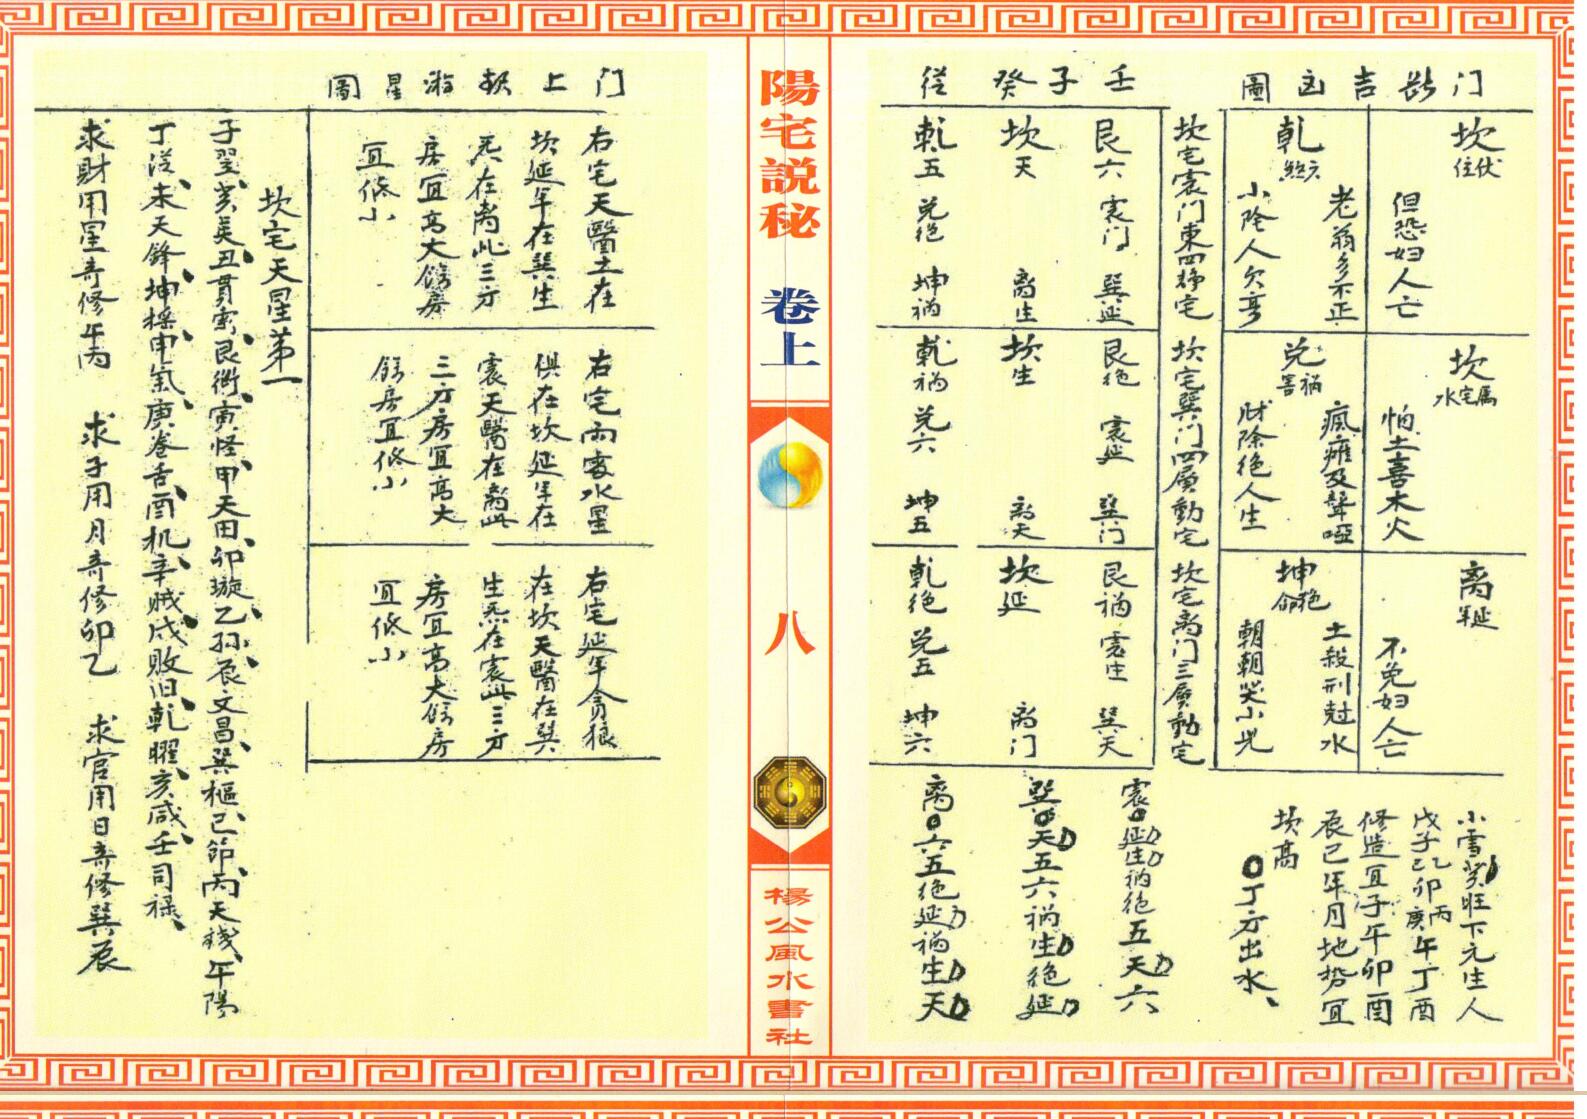 门断吉凶圖
坎 伏位
但恐妇人亡
乾 六煞
老翁多不正
小阴人欠亨
坎 坎宅属水
怕土喜木火
兑 祸害
瘋癱及聾啞
財除绝人生
离 延年
不免妇人亡
坤 绝命
土殺刑尅水
朝朝哭小児
小雪癸旺下元生人
戊子己卯丙午丁酉
修造宜子午卯酉
辰巳年月地势宜
坎高
丁方出水、
壬子癸
坎宅震门東四静宅
艮六 震门 巽延
坎天 离生
乾五 兑绝 坤祸
坎宅巽门四層動宅
艮绝 震延 巽门
坎生 离天
乾祸 兑六 坤五
坎宅离门三層動宅
艮祸 震生 巽天
坎延 离门
乾绝 兑五 坤六
震 延生祸绝五天六
巽 天五六祸生绝延
离 六五绝延祸生天
陽宅説秘 卷上
八
楊公風水書社
门上 游星圖
右宅天醫土在
坎延年在巽生
炁在离此三方
房宜高大餘房
宜低小
右宅雨露水星
俱在坎延年在
震天醫在离此
三方房宜高大
餘房宜低小
右宅延年貪狼
在坎天醫在巽
生炁在震此三方
房宜高大餘房
宜低小
坎宅天星第一
子翌、癸美、丑貫索、艮衡、寅怪、甲天田、卯璇、乙孙、辰文昌、巽樞、巳節、丙天錢、午陽
丁从、未天鋒、坤摇、申氣、庚卷舌、酉机、辛贼、戍败旧、乾曜、亥咸、壬司禄、
求財用星奇修午丙 求子用月奇修卯乙 求官用日奇修巽辰